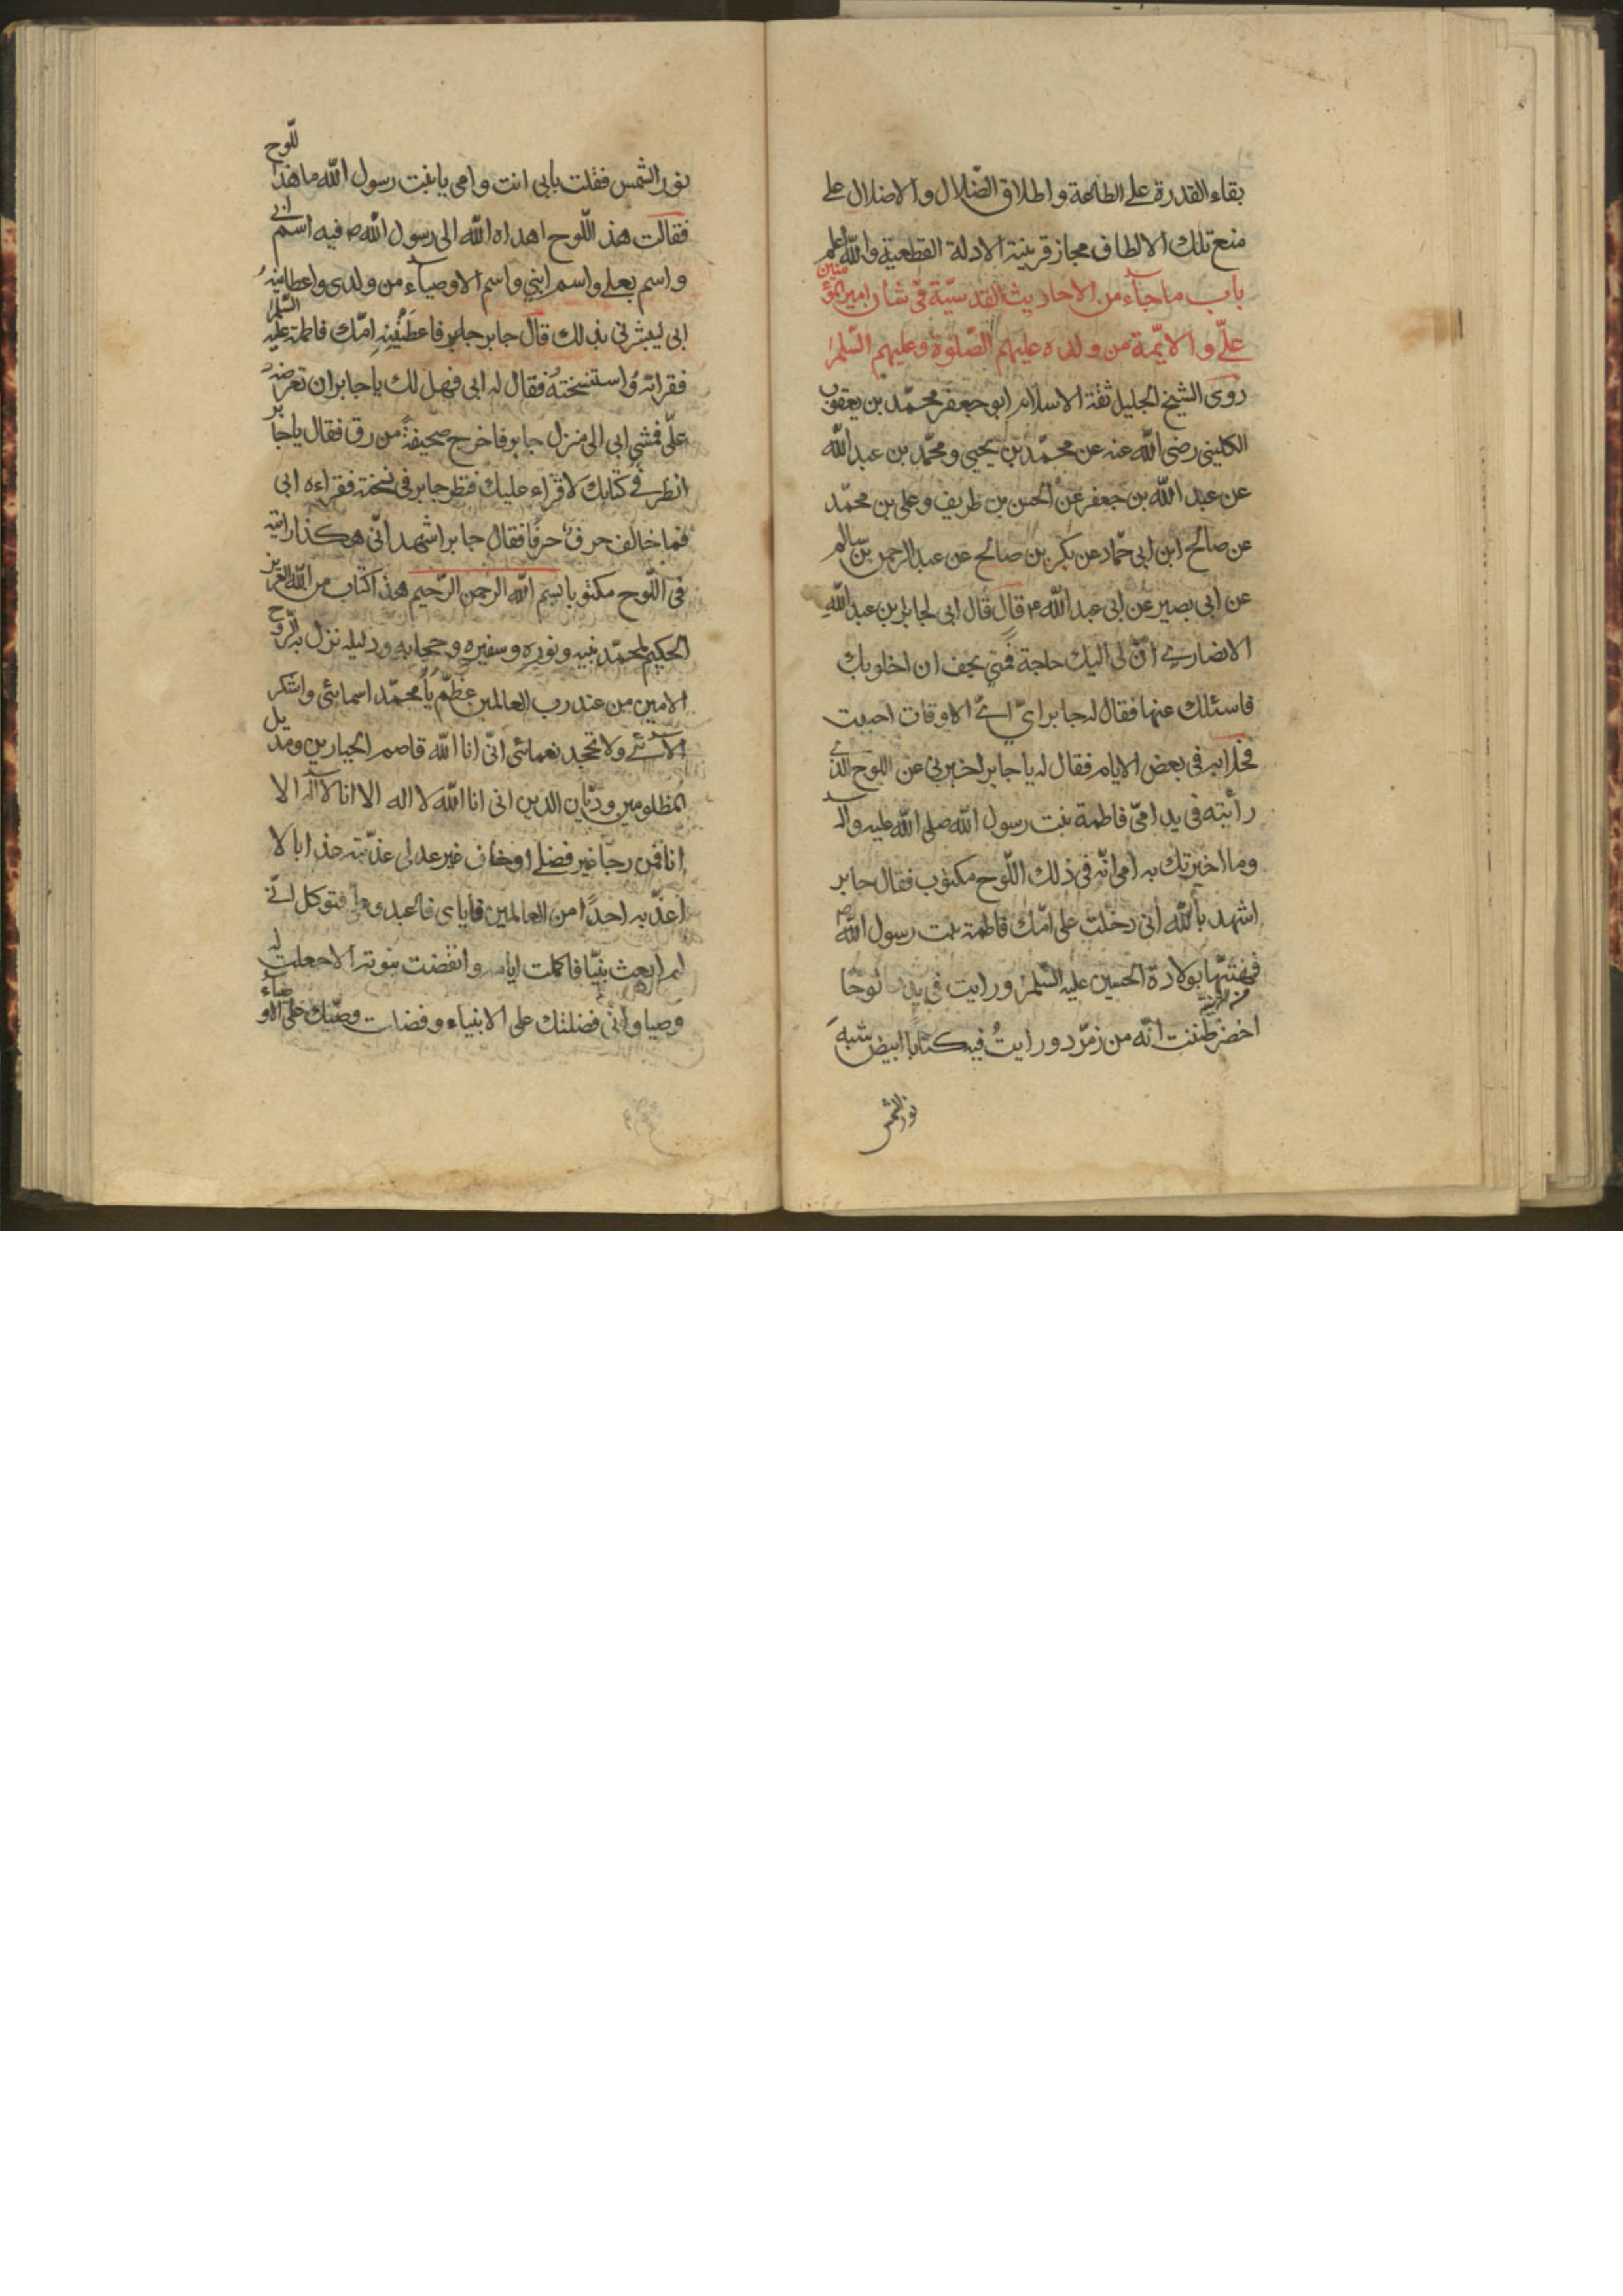 بقاء القدرة على الطاعة واطلاق الضّلال والاضلال على
منع تلك الالطاف مجاز قرينة الادلة القطعية والله اعلم
باب ما جاء من الاحاديث القدسيّة فى شأن امير المؤمنين
علىّ والائمّة من ولده عليهم الصّلوة وعليهم السّلم
روى الشيخ الجليل ثقة الاسلام ابو جعفر محمّد بن يعقوب
الكلينى رضى الله عنه عن محمّد بن يحيى ومحمّد بن عبد الله
عن عبد الله بن جعفر عن الحسن بن ظريف وعلى بن محمّد
عن صالح ابن ابى حمّاد عن بكر بن صالح عن عبد الرحمن بن سالم
عن ابى بصير عن ابى عبد الله ع قال قال ابى لجابر بن عبد الله
الانصارى انّ لى اليك حاجة فمتى يخف ان اخلو بك
فاسئلك عنها فقال له جابر اىّ الاوقات احببت
فخلا به فى بعض الايام فقال له يا جابر اخبرنى عن اللوح الذى
رأيته فى يد امّى فاطمة بنت رسول الله صلى الله عليه واله
وما اخبرتك به امى انّه فى ذلك اللّوح مكتوب فقال جابر
اشهد بالله انى دخلت على امّك فاطمة بنت رسول الله ص
فهنيتها بولادة الحسين عليه السّلم ورايت فى يدها لوحًا
اخضر ظننت انّه من زمرّد ورايت فيه كتابًا ابيض شبه
نور الشمس
نور الشمس فقلت بابى انت وامى يا بنت رسول الله ما هذا اللّوح
فقالت هذ اللّوح اهداه الله الى رسول الله ص فيه اسم ابى
واسم بعلى واسم ابنى واسم الاوصياء من ولدى واعطانيه
ابى ليبشرنى بذلك قال جابر فاعطتنيه امّك فاطمة عليه السّلم
فقراته واستنسخته فقال له ابى فهل لك يا جابر ان تعرضه
علىّ فمشى ابى الى منزل جابر فاخرج صحيفة من رق فقال يا جابر
انظر فى كتابك لاقراء عليك فنظر جابر فى نسخته فقراءه ابى
فما خالف حرف حرفًا فقال جابر اشهد انّى هكذا رايته
فى اللّوح مكتوبا بسم الله الرحمن الرّحيم هذا كتاب من الله العزيز
الحكيم لمحمّد نبيه ونوره وسفيره وحجابه ودليله نزل به الرّوح
الامين من عند رب العالمين عظّم يا محمّد اسمائى واشكر
الآئى ولا تجحد نعمائى انّى انا الله قاصم الجبارين ومديل
المظلومين وديّان الدين انى انا الله لا اله الا انا لا اله الا
انا فمن رجا غير فضلى او خاف غير عدلى عذّبته عذابا لا
اعذّبه احدًا من العالمين فاياى فاعبد وعلى فتوكل انّى
لم ابعث نبيّا فاكملت ايامه وانقضت نبوته الا جعلت له
وصيا وانّى فضلتك على الانبياء وفضلت وصيّك على الاوصياء